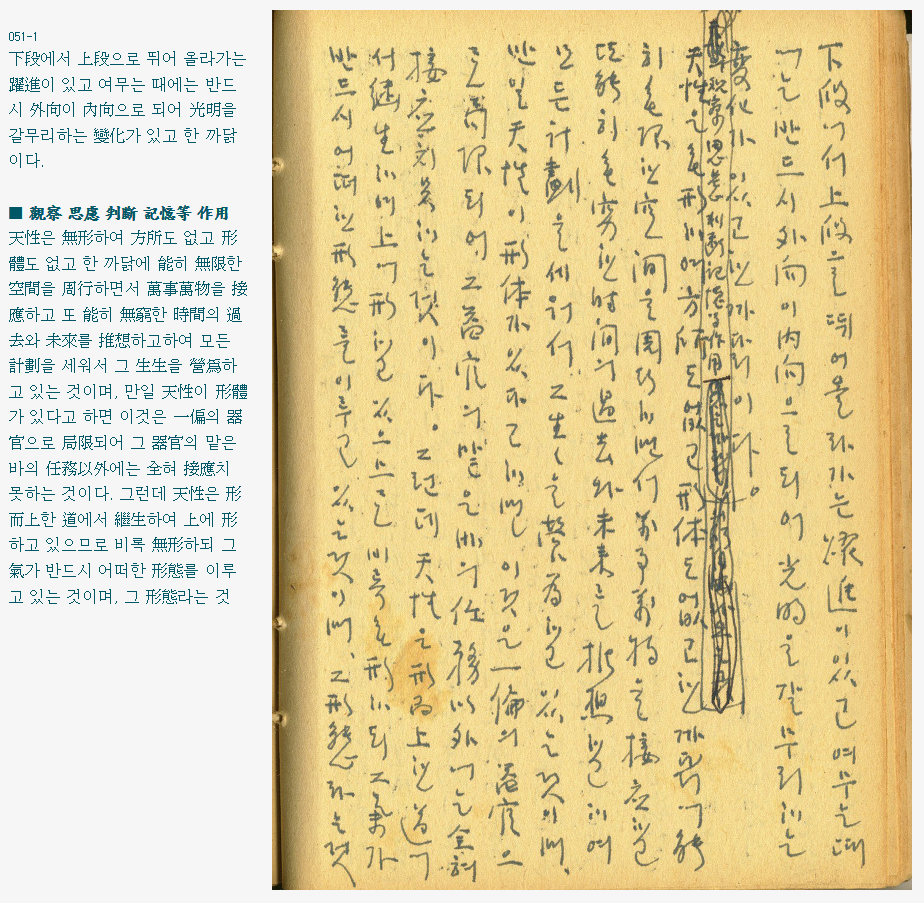 051-1
下段에서 上段으로 뛰어 올라가는
躍進이 있고 여무는 때에는 반드
시 外向이 內向으로 되어 光明을
갈무리하는 變化가 있고 한 까닭
이다.
■ 觀察 思慮 判斷 記憶等 作用
天性은 無形하여 方所도 없고 形
體도 없고 한 까닭에 能히 無限한
空間을 周行하면서 萬事萬物을 接
應하고 또 能히 無窮한 時間의 過
去와 未來를 推想하고하여 모든
計劃을 세워서 그 生生을 營爲하
고 있는 것이며, 만일 天性이 形體
가 있다고 하면 이것은 一偏의 器
官으로 局限되어 그 器官의 맡은
바의 任務以外에는 全혀 接應치
못하는 것이다. 그런데 天性은 形
而上한 道에서 繼生하여 上에 形
하고 있으므로 비록 無形하되 그
氣가 반드시 어떠한 形態를 이루
고 있는 것이며, 그 形態라는 것
下段에서 上段으로 뛰어 올라가는 躍進이 있고 여무는 때
에는 반드시 外向이 內向으로 되어 光明을 갈무리하는
變化가 있고 한 까닭이다。
觀察 思慮 判斷 記憶等 作用
天性은 無形하여 方所도 없고 形体도 없고 한 까닭에 能
히 無限한 空間을 周行하면서 萬事萬物을 接应하고
또 能히 無窮한 時间의 過去와 未来를 推想하고하여
모든 計劃을 세워서 그 生生을 營為하고 있는 것이며,
만일 天性이 形体가 있다고 하면 이것은 一偏의 器官으
로 局限되어 그 器官의 맡은 바의 任務以外에는 全혀
接应치 못하는 것이다。 그런데 天性은 形而上한 道에
서 繼生하여 上에 形하고 있으므로 비록 無形하되 그 氣가
반드시 어떠한 形態를 이루고 있는 것이며, 그 形態라는 것